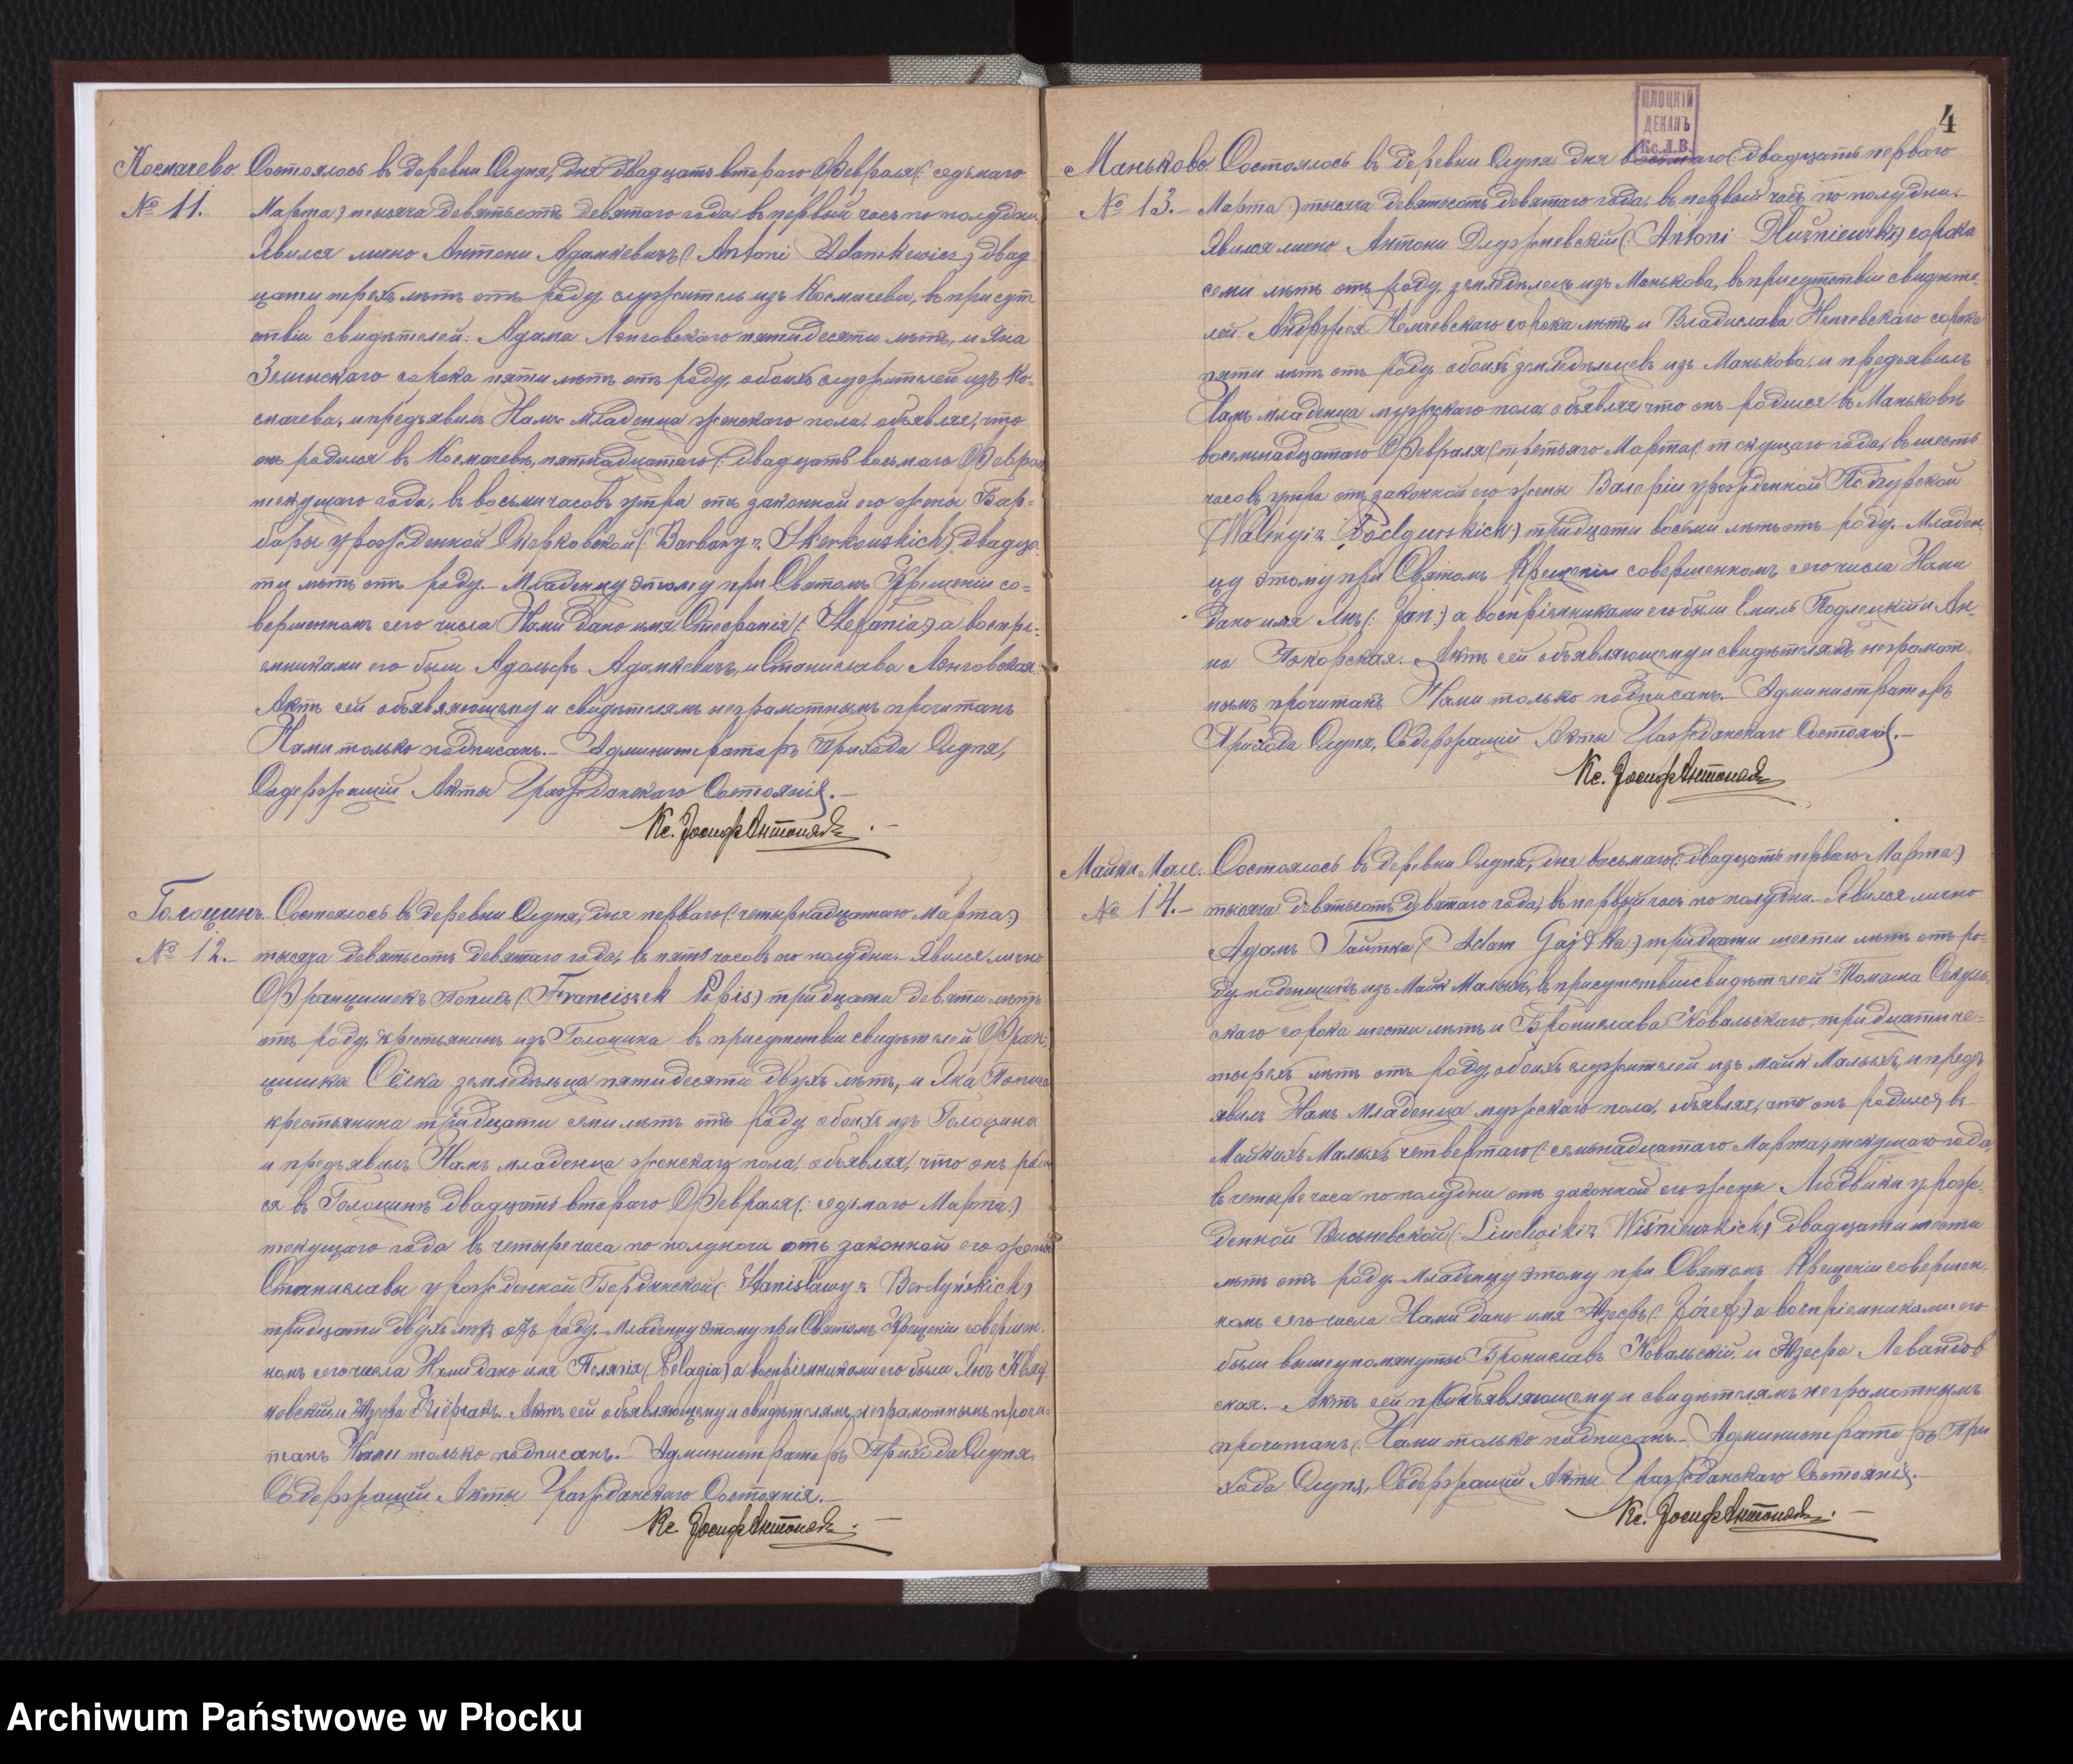 Космачево. Состоялось въ деревни Слупя, дня двадцать втораго Февраля (: седьмаго
№ 11. Марта:) тысяча девятьсотъ девятаго года, въ первый часъ по полудни.
Явился лично Антони Адамкевичъ (: Antoni Adamkiewicz:) двад
цати трехъ лѣтъ отъ роду, служитель изъ Космачева, въ присутс
ствіи свидѣтелей: Адама Лэнговскаго пятидесяти лѣтъ, и Яна
Зелинскаго сорока пяти лѣтъ отъ роду, обоихъ служителей изъ Ко-
смачева, и предъявилъ Намъ младенца женскаго пола, объявляя, что
онъ родился въ Космачевѣ, пятнадцатаго (: двадцать восьмаго Февраля
текущаго года, въ восемь часовъ утра отъ законной его жены Бар=
бары урожденной Скерковской (: Barbary z Skerkowskich:) двадца-
ти лѣтъ отъ роду. – Младенцу этому при Святомъ Крещеніи со=
вершенномъ сего числа Нами дано имя Стефанія (: Stefania:) а воспрі-
емниками его были Адольфъ Адамкевичъ, и Станислава Лэнговская.
Актъ сей объявляющему и свидѣтелямъ неграмотнымъ прочитанъ
Нами только подписанъ. – Администраторъ Прихода Слупя,
Содержащій Акты Гражданскаго Состоянія. –
Кс. Іосифъ Антонякъ. –
Голоцинъ. Состоялось въ деревни Слупя, дня перваго (: четырнадцатаго Марта:)
№ 12. – тысяча девятьсотъ девятаго года, въ пять часовъ по полудни. Явился лично
Францишекъ Пописъ (: Franciszek Popis:) тридцати девяти лѣтъ
отъ роду, крестьянинъ изъ Голоцина въ присутствіи свидѣтелей Фран-
цишка земледѣльца пятидесяти двухъ лѣтъ, и Яна Пописа
крестьянина тридцати семи лѣтъ отъ роду, обоихъ изъ Голоцина
и предъявилъ Намъ младенца женскаго пола, объявляя, что онъ родил
ся въ Голоцинѣ двадцать втораго Февраля (: седьмаго Марта:)
текущаго года въ четыре часа по полуночи отъ законной его жены
Станиславы урожденной Бердынской (: Stanisławy z Berdyńskich:)
тридцати двухъ лѣтъ отъ роду. – Младенцу этому при Святомъ Крещеніи совершен-
номъ сего числа Нами дано имя Пелагія (: Pelagia:) а воспріемниками его были Янъ Квят
ковскій и Юзефа. Актъ сей объявляющему и свидѣтелямъ неграмотнымъ прочи-
танъ Нами только подписанъ. – Администраторъ Прихода Слупя,
Содержащій Акты Гражданскаго Состоянія. –
Кс. Іосифъ Антонякъ. –
ПЛОЦКІЙ
ДЕКАНЪ
Кс. Л. В.
4
Маньково. Состоялось въ деревни Слупя дня восьмаго (: двадцать перваго
№ 13. – Марта:) тысяча девятьсотъ девятаго года, въ первый часъ по полудни. –
Явился лично Антони Длужневскій (: Antoni Dłużniewski:) сорока
семи лѣтъ отъ роду, земледѣлецъ изъ Манькова, въ присутствіи свидѣте-
лей: Андржея сорока лѣтъ, и Владислава сорока
пяти лѣтъ отъ роду, обоихъ земледѣльцевъ изъ Манькова, и предъявилъ
Намъ младенца мужскаго пола, объявляя что онъ родился въ Маньковѣ
восемнадцатаго Февраля (: третьяго Марта (: текущаго года, въ шесть
часовъ утра отъ законной его жены Валеріи урожденной Подгурской
(: Waleryi z Podgurskich:) тридцати восьми лѣтъ отъ роду. – Младен-
цу этому при Святомъ Крещеніи совершенномъ сего числа Нами
дано имя Янъ (: Jan:) а воспріемниками его были Емиль Подлецкій и Ан-
на Покорская. Актъ сей объявляющему и свидѣтелямъ неграмот-
нымъ прочитанъ Нами только подписанъ. – Администраторъ
Прихода Слупя, Содержащій Акты Гражданскаго Состоянія. –
Кс. Іосифъ Антонякъ
Майки Мале. Состоялось въ деревни Слупя, дня восьмаго (: двадцать перваго Марта:)
№ 14. – тысяча девятьсотъ девятаго года, въ первый часъ по полудни. – Явился лично
Адамъ Гайтка (: Adam Gajtka:) тридцати шести лѣтъ отъ ро-
ду, поденщикъ изъ Маикъ Малыхъ, въ присутствіи свидѣтелей Томаша
скаго сорока шести лѣтъ и Бронислава Ковальскаго, тридцати че-
тырехъ лѣтъ отъ роду, обоихъ служителей изъ Маикъ Малыхъ, и предъ
явилъ Намъ младенца мужескаго пола, объявляя, что онъ родился въ
Майкахъ Малыхъ четвертаго (: семнадцатаго Марта:) текущаго года,
въ четыре часа по полудни отъ законной его жены Людвики урож-
денной Висьневской (: Ludwiki z Wiśniewskich:) двадцати шести
лѣтъ отъ роду. – Младенцу этому при Святомъ Крещеніи совершен-
номъ сего числа Нами дано имя Юзефъ (: Józef:) а воспріемниками его
были вышеупомянутый Брониславъ Ковальскій, и Юзефа Левандов
ская. – Актъ сей объявляющему и свидѣтелямъ неграмотнымъ
прочитанъ (: Нами только подписанъ. – Администраторъ При
хода Слупя, Содержащій Акты Гражданскаго Состоянія. –
Кс. Іосифъ Антонякъ. –
Archiwum Państwowe w Płocku